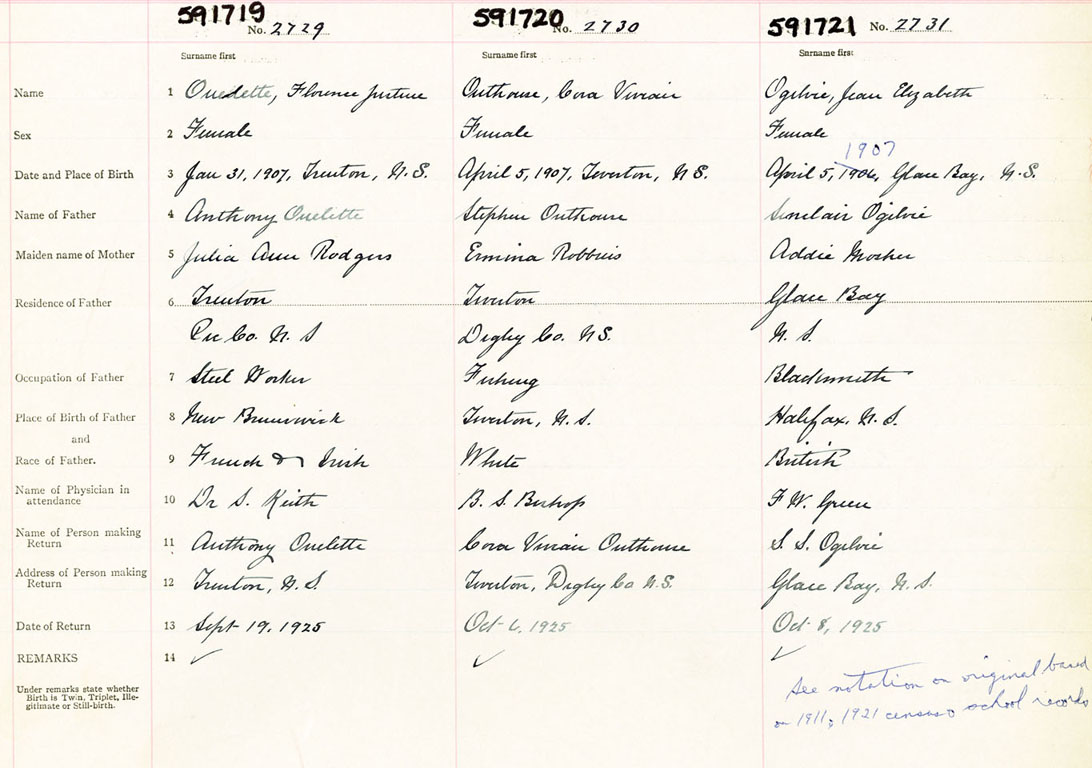 591719 No. 2729 591720 No. 2730 591721 No. 2731
Surname first Surname first Surname first
Name 1 Ouellette, Florence Justine Outhouse, Cora Vivian Ogilvie, Jean Elizabeth
Sex 2 Female Female Female
1907
Date and Place of Birth 3 Jan 31, 1907, Trenton, N.S. April 5, 1907, Tiverton, N.S. April 5, 1906, Glace Bay, N.S.
Name of Father 4 Anthony Ouelette Stephen Outhouse Sinclair Ogilvie
Maiden name of Mother 5 Julia Ann Rodgers Ermina Robbins Addie Mosher
Residence of Father 6 Trenton Tiverton Glace Bay
Pic Co. N.S Digby Co. N.S. N.S.
Occupation of Father 7 Steel Worker Fishing Blacksmith
Place of Birth of Father 8 New Brunswick Tiverton, N.S. Halifax, N.S.
and
Race of Father. 9 French & Irish White British
Name of Physician in
attendance 10 Dr S. Keith B. S. Bishop F W. Green
Name of Person making
Return 11 Anthony Ouelette Cora Vivian Outhouse S. S. Ogilvie
Address of Person making
Return 12 Trenton, N.S. Tiverton, Digby Co N.S. Glace Bay, N.S.
Date of Return 13 Sept 19, 1925 Oct 6, 1925 Oct 8, 1925
REMARKS 14 ✓ ✓ ✓
Under remarks state whether
Birth is Twin, Triplet, Ille-
gitimate or Still-birth.
See notation on original based
on 1911, 1921 census & school records